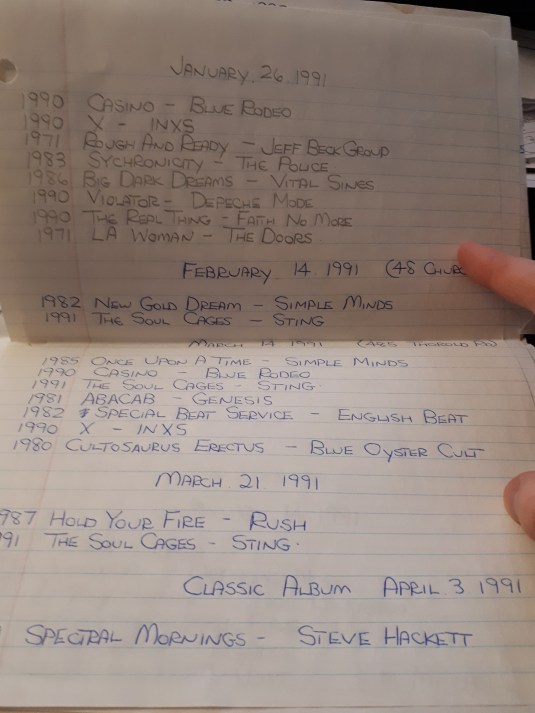 JANUARY 26 1991
1990 CASINO - BLUE RODEO
1990 X - INXS
1971 ROUGH AND READY - JEFF BECK GROUP
1983 SYCHRONICITY - THE POLICE
1986 BIG DARK DREAMS - VITAL SINES
1990 VIOLATOR - DEPECHE MODE
1990 THE REAL THING - FAITH NO MORE
1971 LA WOMAN - THE DOORS
FEBRUARY 14 1991 (48
1982 NEW GOLD DREAM - SIMPLE MINDS
1991 THE SOUL CAGES - STING
MARCH 14 1991
1985 ONCE UPON A TIME - SIMPLE MINDS
1990 CASINO - BLUE RODEO
1991 THE SOUL CAGES - STING.
1981 ABACAB - GENESIS
1982 SPECIAL BEAT SERVICE - ENGLISH BEAT
1990 X - INXS
1980 CULTOSAURUS ERECTUS - BLUE OYSTER CULT
MARCH 21 1991
987 HOLD YOUR FIRE - RUSH
91 THE SOUL CAGES - STING.
CLASSIC ALBUM APRIL 3 1991
SPECTRAL MORNINGS - STEVE HACKETT